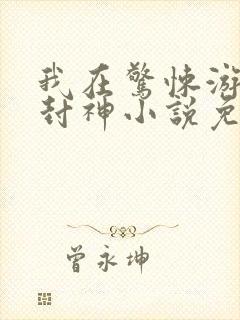 我在驚悚游
封神小說免
曾永坤